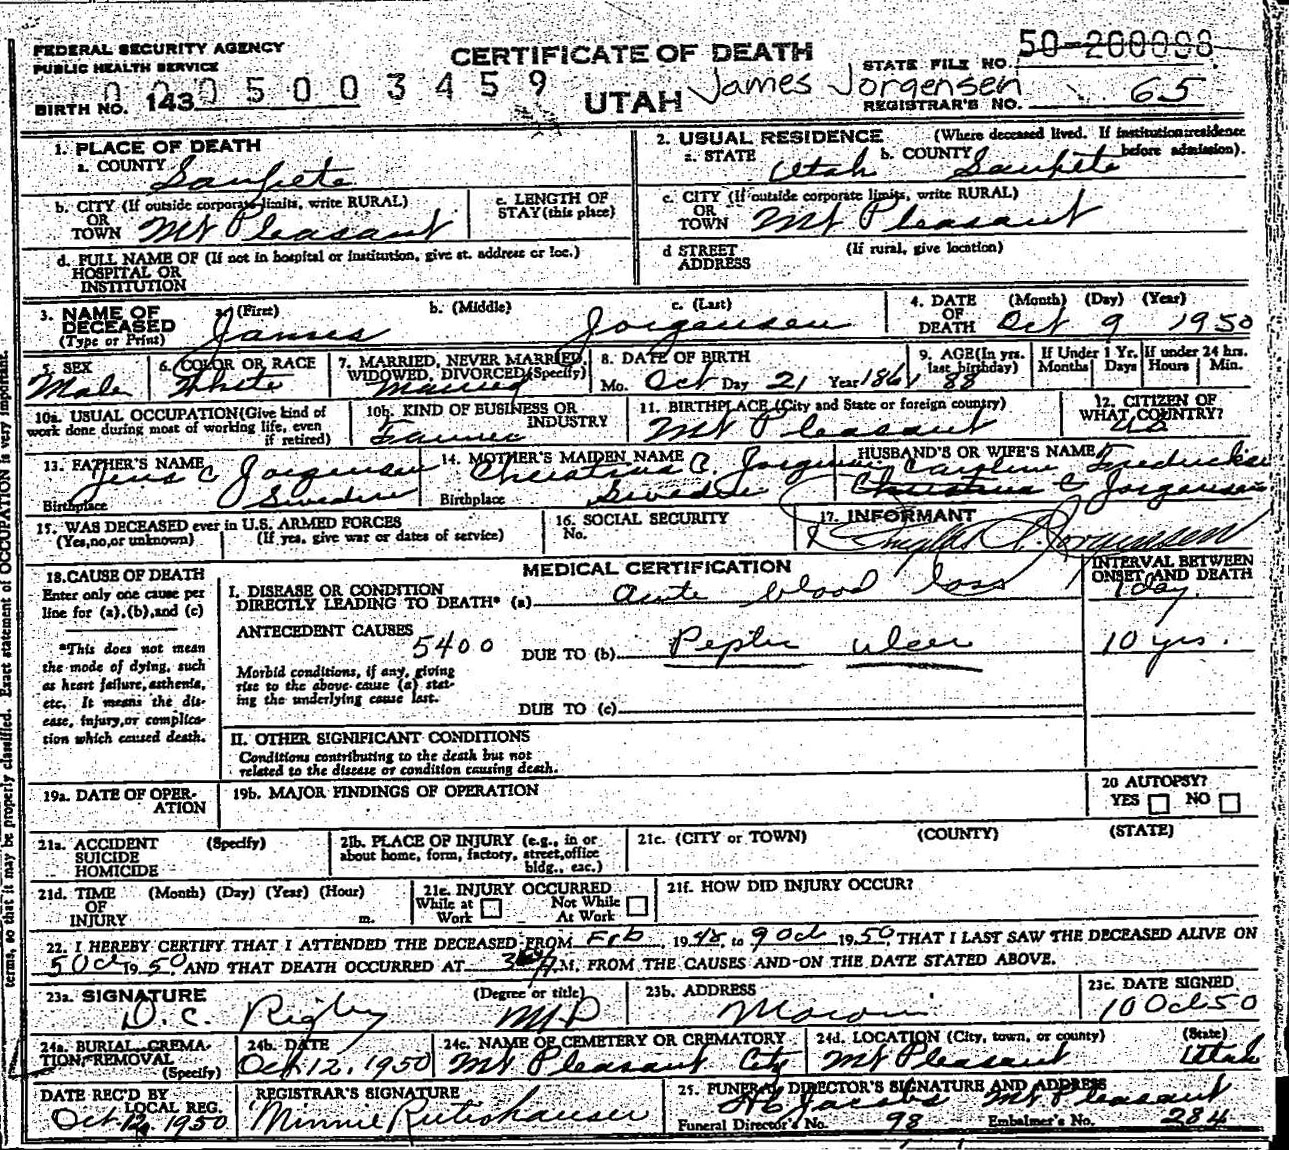 FEDERAL SECURITY AGENCY
PUBLIC HEALTH SERVICE
BIRTH NO. 143
0 0 0 5 0 0 3 4 5 9
CERTIFICATE OF DEATH
UTAH
James Jorgensen
STATE FILE NO. 50-200098
REGISTRAR'S NO. 65
1. PLACE OF DEATH
a. COUNTY Sanpete
2. USUAL RESIDENCE (Where deceased lived. If institution: residence before admission).
a. STATE Utah b. COUNTY Sanpete
b. CITY (If outside corporate limits, write RURAL) OR TOWN Mt Pleasant
c. LENGTH OF STAY (this place)
c. CITY (If outside corporate limits, write RURAL) OR TOWN Mt Pleasant
d. FULL NAME OF (If not in hospital or institution, give st. address or loc.) HOSPITAL OR INSTITUTION
d STREET ADDRESS (If rural, give location)
3. NAME OF DECEASED (Type or Print) a. (First) James b. (Middle) c. (Last) Jorgensen
4. DATE OF DEATH (Month) (Day) (Year) Oct 9 1950
5. SEX Male
6. COLOR OR RACE White
7. MARRIED, NEVER MARRIED, WIDOWED, DIVORCED (Specify) Married
8. DATE OF BIRTH Mo. Oct Day 21 Year 186
9. AGE (In yrs. last birthday) 88
If Under 1 Yr. Months Days
If under 24 hrs. Hours Min.
10a. USUAL OCCUPATION (Give kind of work done during most of working life, even if retired)
10b. KIND OF BUSINESS OR INDUSTRY Farmer
11. BIRTHPLACE (City and State or foreign country) Mt Pleasant
12. CITIZEN OF WHAT COUNTRY? US
13. FATHER'S NAME Jens C Jorgensen
Birthplace Sweden
14. MOTHER'S MAIDEN NAME Christina C. Jorgensen
Birthplace Sweden
HUSBAND'S OR WIFE'S NAME Caroline
Christina C Jorgensen
15. WAS DECEASED ever in U.S. ARMED FORCES (Yes, no, or unknown) (If yes, give war or dates of service)
16. SOCIAL SECURITY No.
17. INFORMANT Jorgensen
18. CAUSE OF DEATH
Enter only one cause per line for (a), (b), and (c)
*This does not mean the mode of dying, such as heart failure, asthenia, etc. It means the disease, injury, or complication which caused death.
MEDICAL CERTIFICATION
INTERVAL BETWEEN ONSET AND DEATH
I. DISEASE OR CONDITION DIRECTLY LEADING TO DEATH* (a) acute blood loss 1 day
ANTECEDENT CAUSES 5400
DUE TO (b) Peptic ulcer 10 yrs.
Morbid conditions, if any, giving rise to the above cause (a) stating the underlying cause last.
DUE TO (c)
II. OTHER SIGNIFICANT CONDITIONS
Conditions contributing to the death but not related to the disease or condition causing death.
19a. DATE OF OPERATION
19b. MAJOR FINDINGS OF OPERATION
20 AUTOPSY? YES NO
21a. ACCIDENT SUICIDE HOMICIDE (Specify)
21b. PLACE OF INJURY (e.g., in or about home, form, factory, street, office bldg., esc.)
21c. (CITY or TOWN) (COUNTY) (STATE)
21d. TIME OF INJURY (Month) (Day) (Year) (Hour) m.
21e. INJURY OCCURRED While at Work Not While At Work
21f. HOW DID INJURY OCCUR?
22. I HEREBY CERTIFY THAT I ATTENDED THE DECEASED FROM Feb, 1948, to 9 Oct 1950, THAT I LAST SAW THE DECEASED ALIVE ON
5 Oct 1950 AND THAT DEATH OCCURRED AT A.M., FROM THE CAUSES AND ON THE DATE STATED ABOVE.
23a. SIGNATURE D. C. Rigby (Degree or title) MD
23b. ADDRESS Moroni
23c. DATE SIGNED 10 Oct 50
24a. BURIAL, CREMATION, REMOVAL (Specify)
24b. DATE Oct. 12, 1950
24c. NAME OF CEMETERY OR CREMATORY Mt Pleasant City
24d. LOCATION (City, town, or county) (State) Mt Pleasant Utah
DATE REC'D BY LOCAL REG. Oct. 12, 1950
REGISTRAR'S SIGNATURE Minnie Rutishauser
25. FUNERAL DIRECTOR'S SIGNATURE AND ADDRESS Jacobs Mt Pleasant
Funeral Director's No. 98 Embalmer's No. 284
terms, so that it may be properly classified. Exact statement of OCCUPATION is very important.